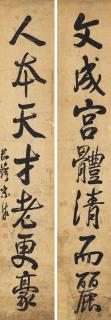 文成宮體清而麗
人本天才老更豪